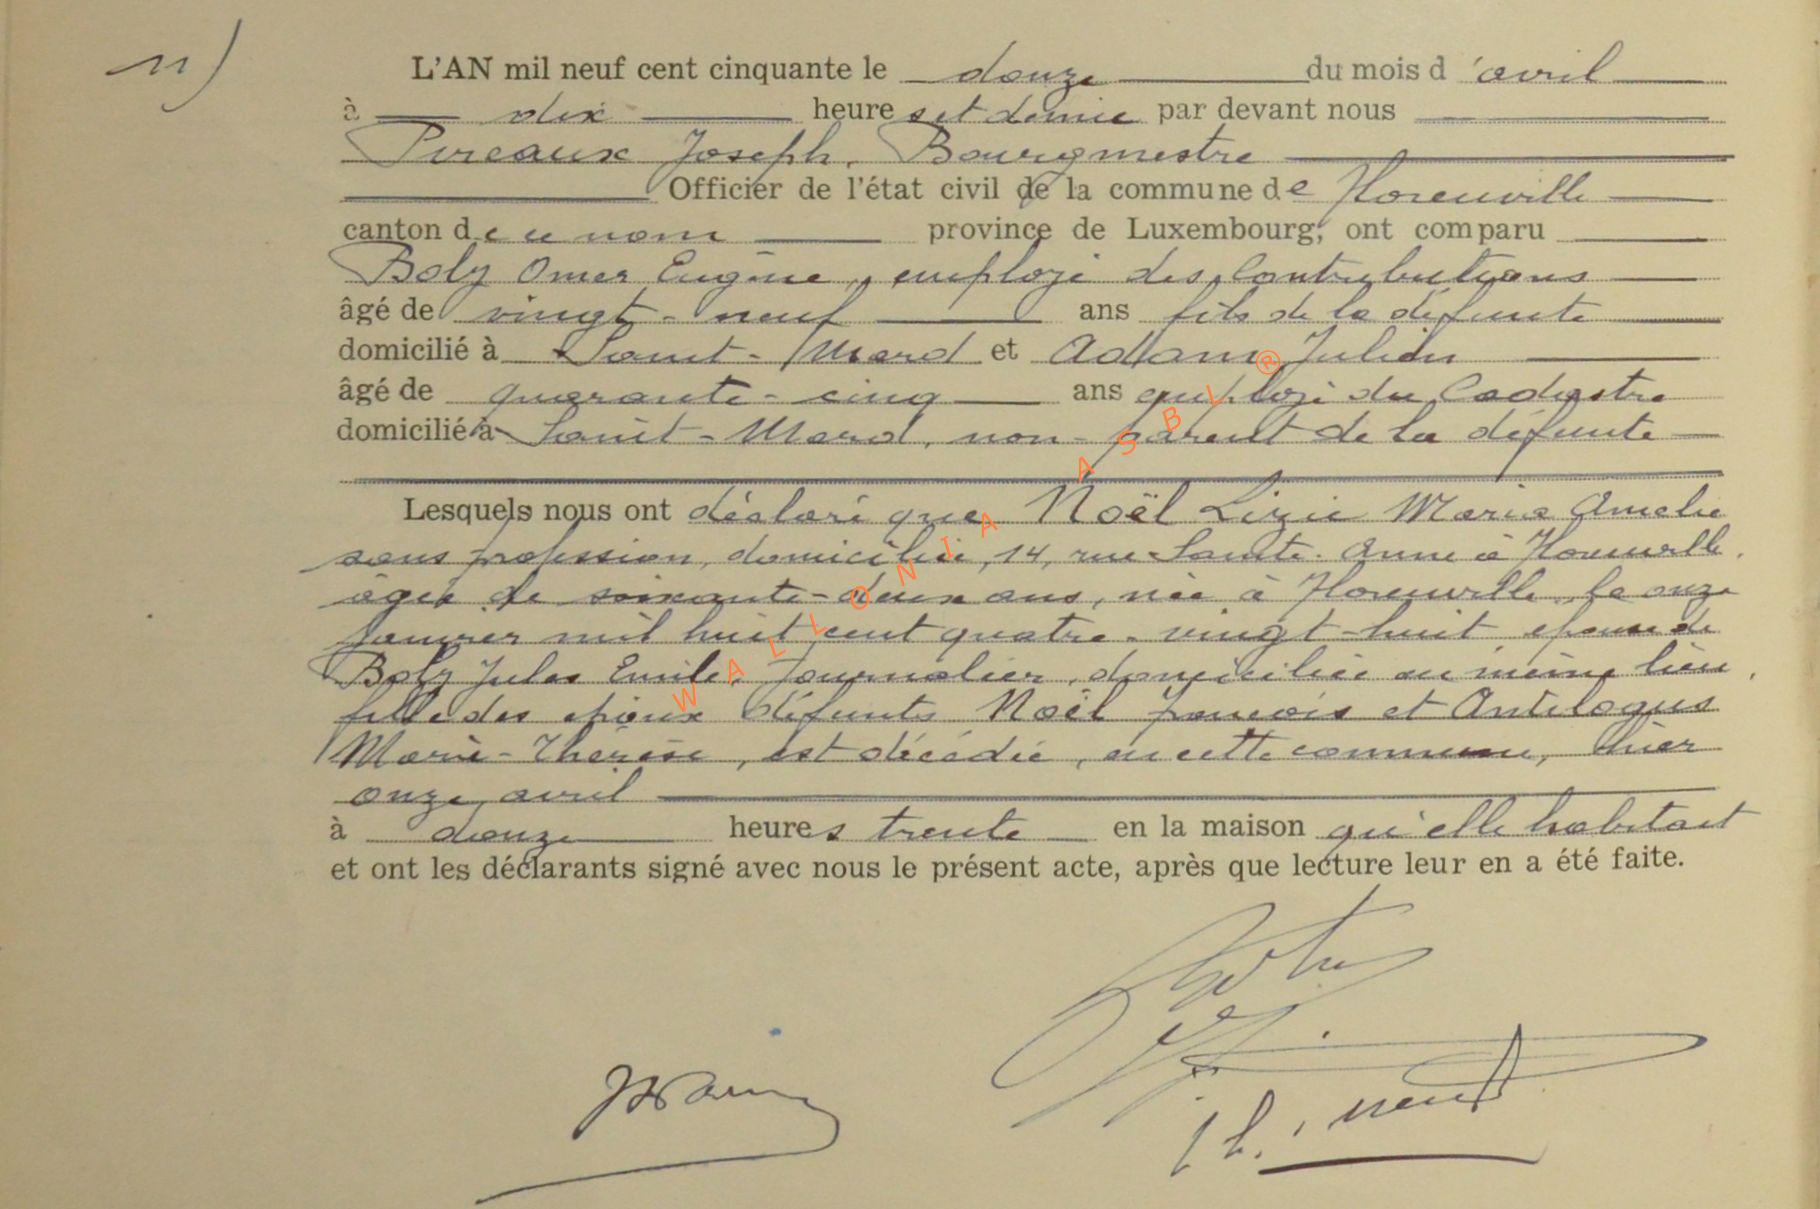 11)
L'AN mil neuf cent cinquante le douze du mois d'avril
à dix heures et demie par devant nous
Pireaux Joseph, Bourgmestre
Officier de l'état civil de la commune de Florenville
canton de ce nom province de Luxembourg, ont comparu
Boly Omer Eugène, employé des Contributions
âgé de vingt-neuf ans fils de la défunte
domicilié à Saint-Mard et Adam Julien
âgé de quarante-cinq ans employé du Cadastre
domicilié à Saint-Mard, non-parent de la défunte
Lesquels nous ont déclaré que Noël Lizie Maria Amelie
sans profession, domiciliée, 14, rue Sainte-Anne à Florenville,
âgée de soixante-deux ans, née à Florenville, le onze
janvier mil huit cent quatre-vingt-huit épouse de
Boly Jules Emile, journalier, domiciliée au même lieu,
fille des époux défunts Noël françois et Antilogus
Marie-Thérèse, est décédée, en cette commune, hier
onze avril
à douze heures trente en la maison qu'elle habitait
et ont les déclarants signé avec nous le présent acte, après que lecture leur en a été faite.
WALLONIA ASBL ®